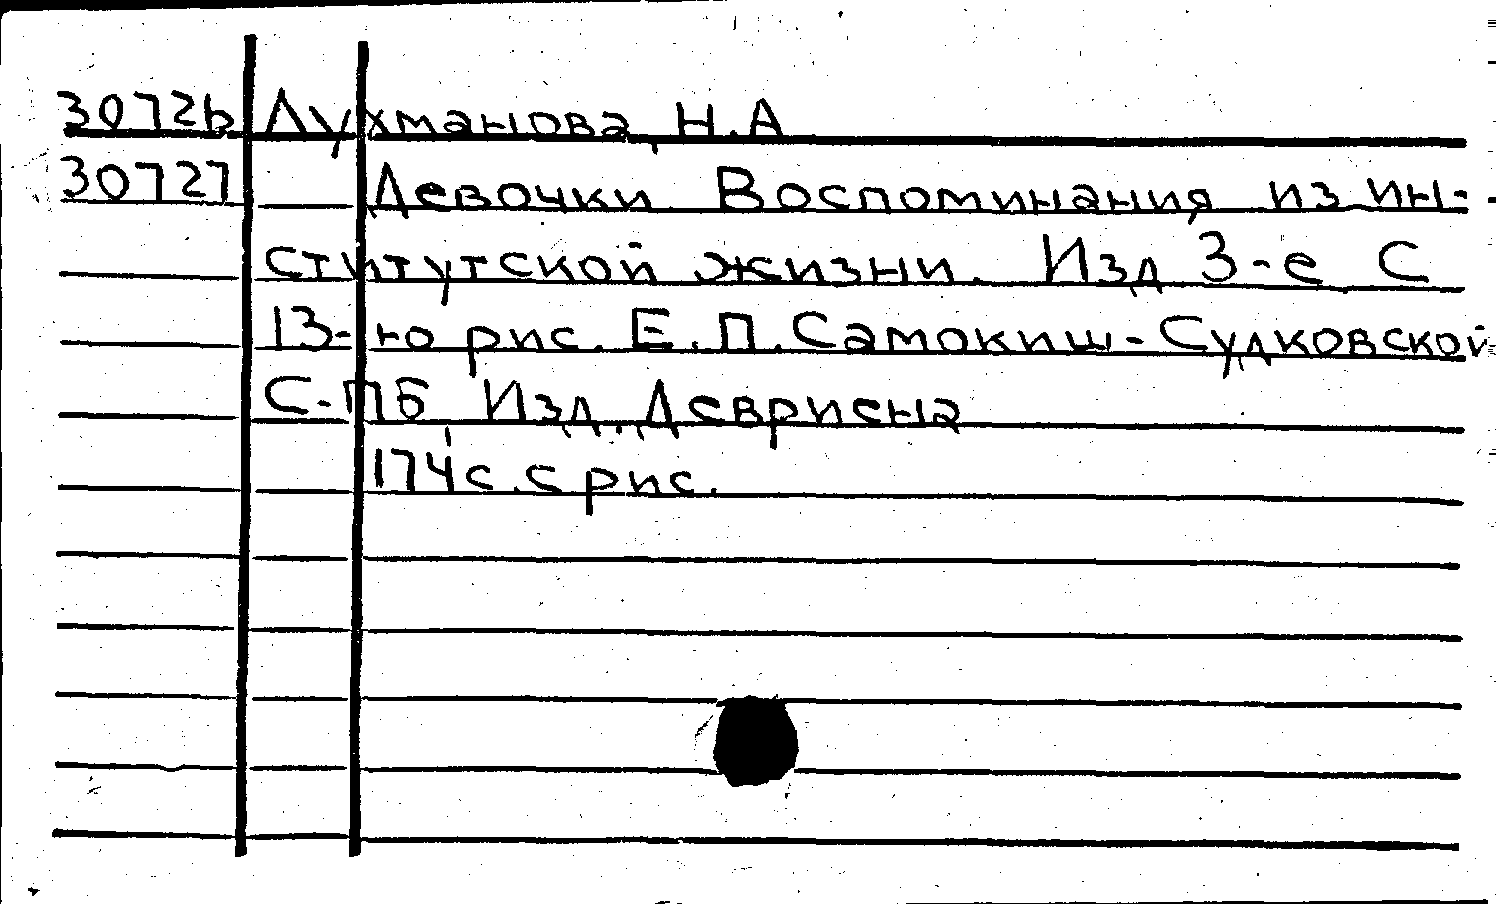 30726 Лухманова, Н.А
30727 Девочки. Воспоминания из ин-
ститутской жизни. Изд 3-е С
13-ю рис. Е.П.Самокиш-Судковской
С-ПБ, Изд. Девриена
174с. с рис.